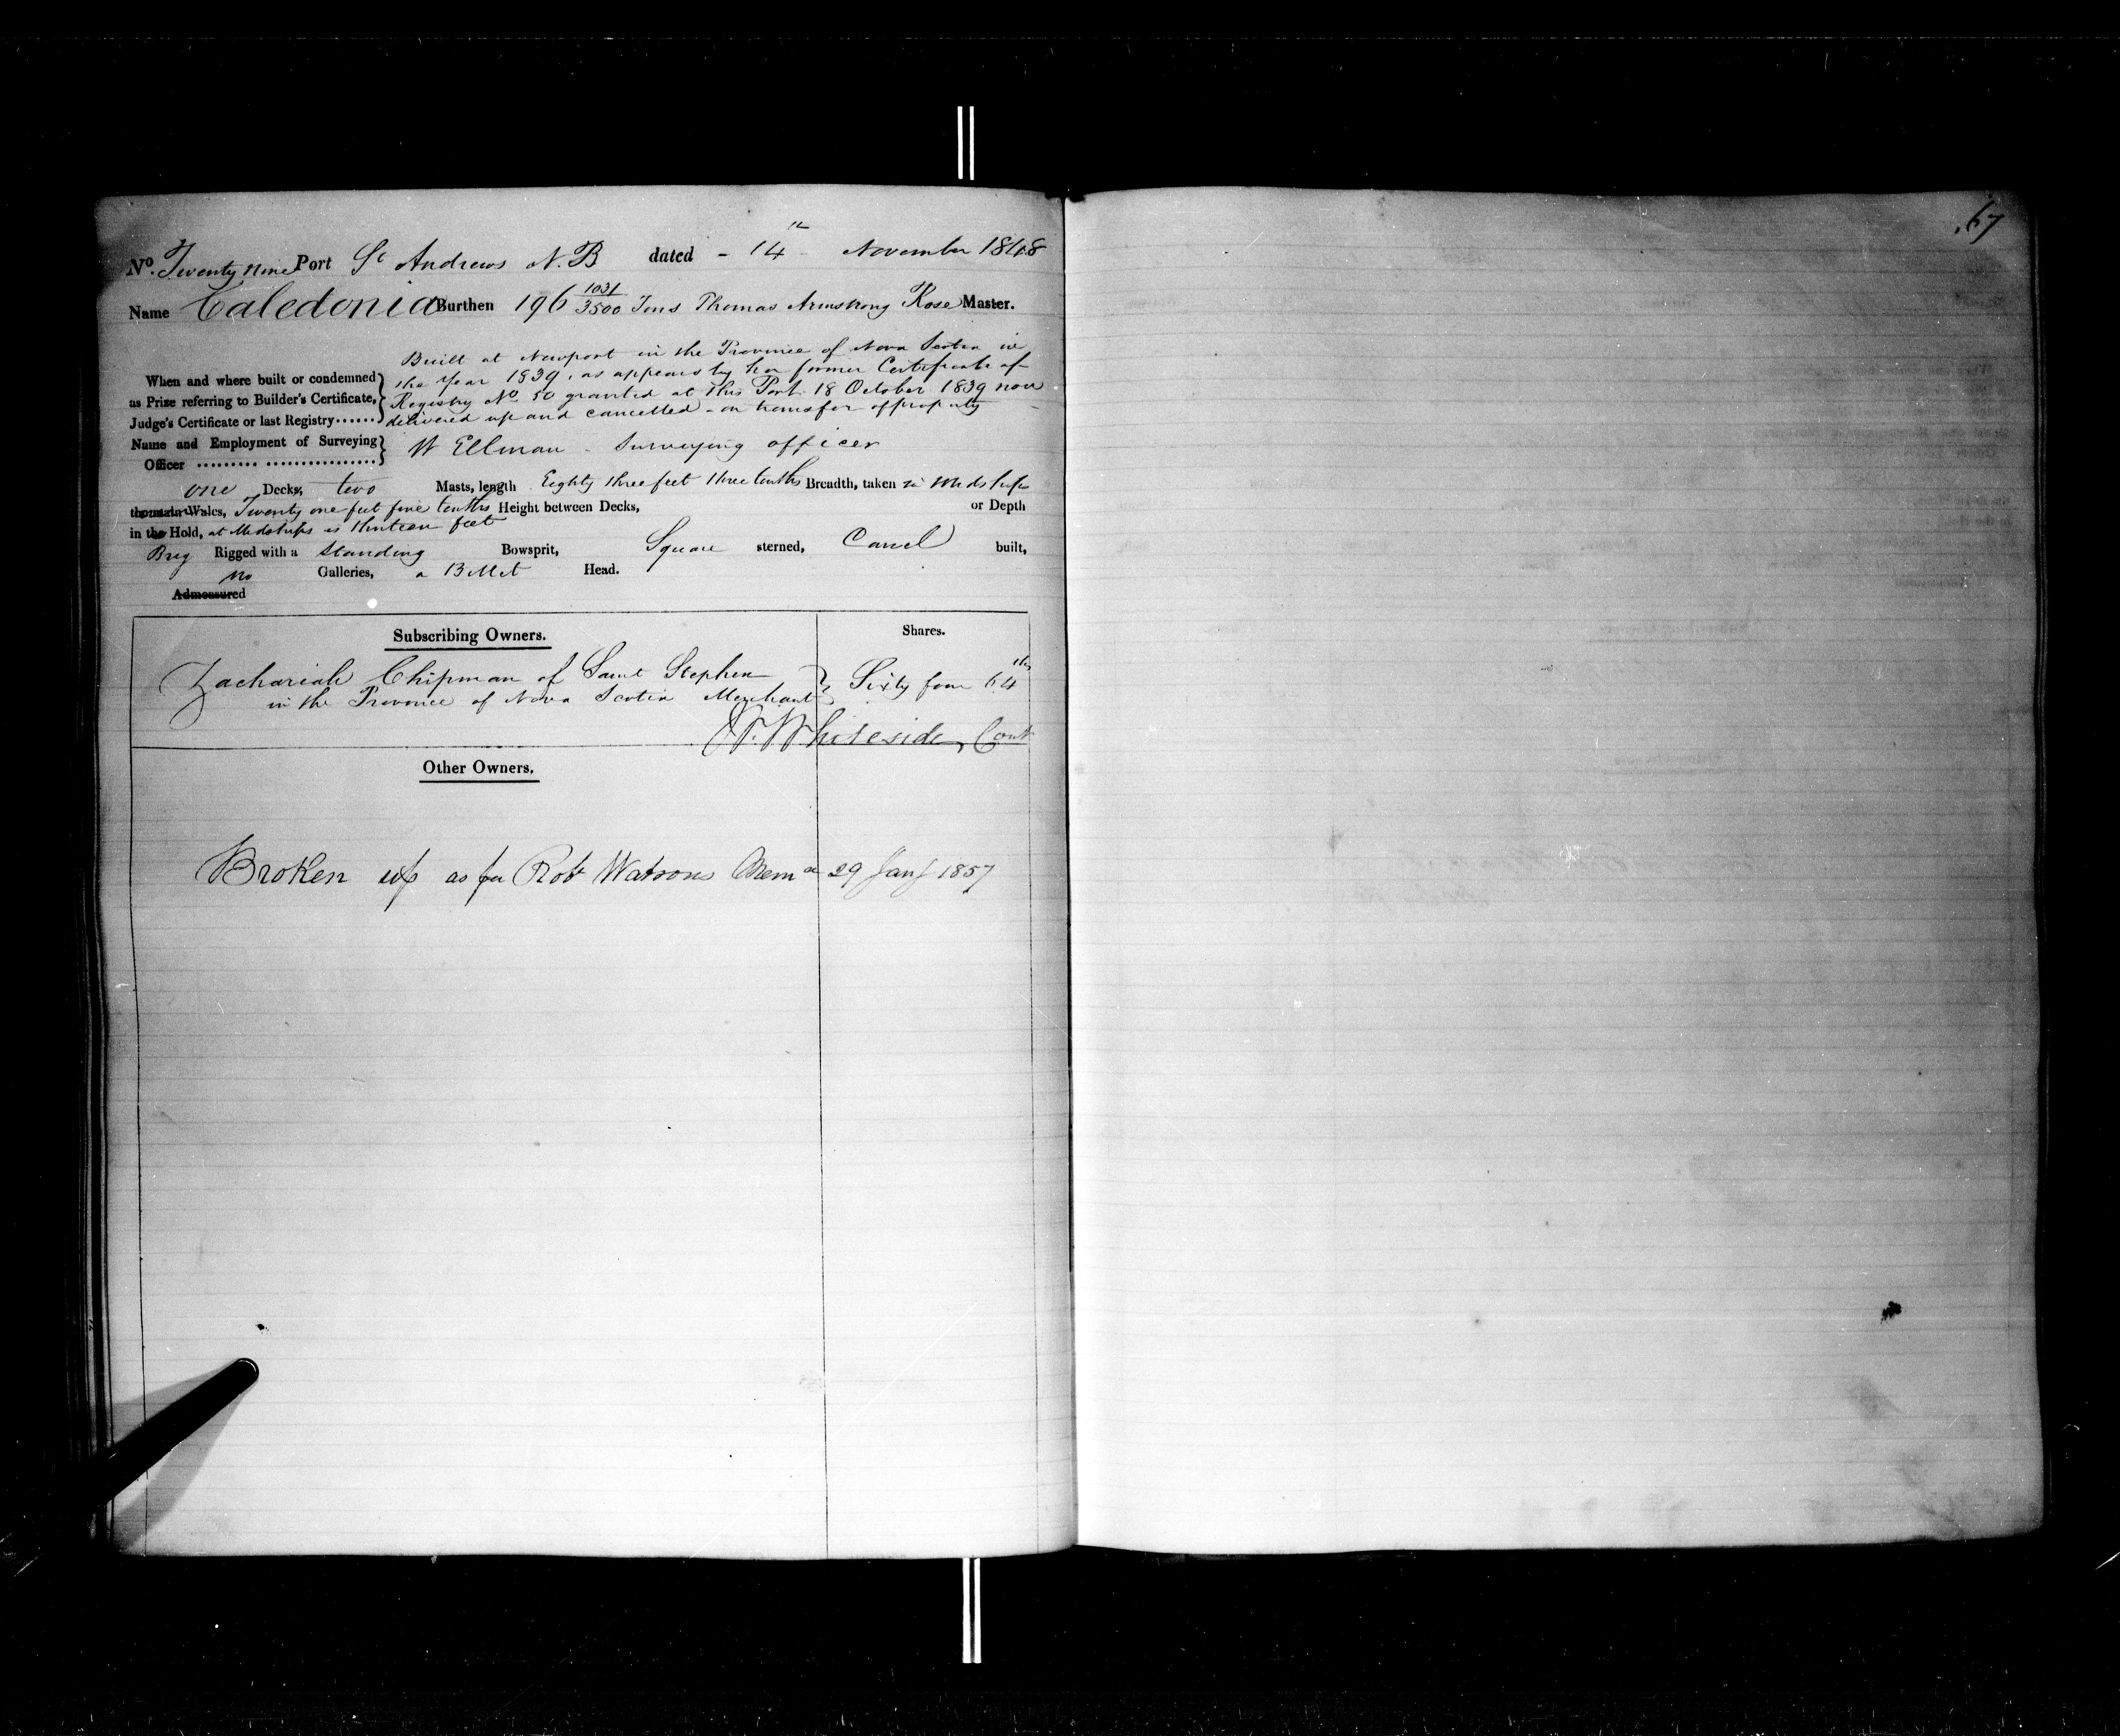 67
No. Twenty nine Port St Andrews N.B dated - 14th November 1848
Name Caledonia Burthen 196 1031/3500 Tons Thomas Armstrong Rose Master.
Built at Newport in the Province of Nova Scotia in
When and where built or condemned the Year 1839, as appears by her former Certificate of
as Prize referring to Builder's Certificate, Registry No. 50 granted at this Port 18 October 1839 now
Judge's Certificate or last Registry...... delivered up and cancelled - on transfer of property
Name and Employment of Surveying
Officer ......... ................ W Ellman - Surveying officer
one Decks, two Masts, length Eighty three feet three tenths Breadth, taken in Midships
Wales, Twenty one feet five tenths Height between Decks, or Depth
in the Hold, at Midships is thirteen feet
Brig Rigged with a Standing Bowsprit, Square sterned, Carvel built,
no Galleries, a Billet Head.
Admeasured
Subscribing Owners. Shares.
Zachariah Chipman of Saint Stephen
in the Province of Nova Scotia Merchant Sixty four 64ths
Whiteside, Cont
Other Owners.
Broken up as per Robt Watsons Memo 29 Jany 1857